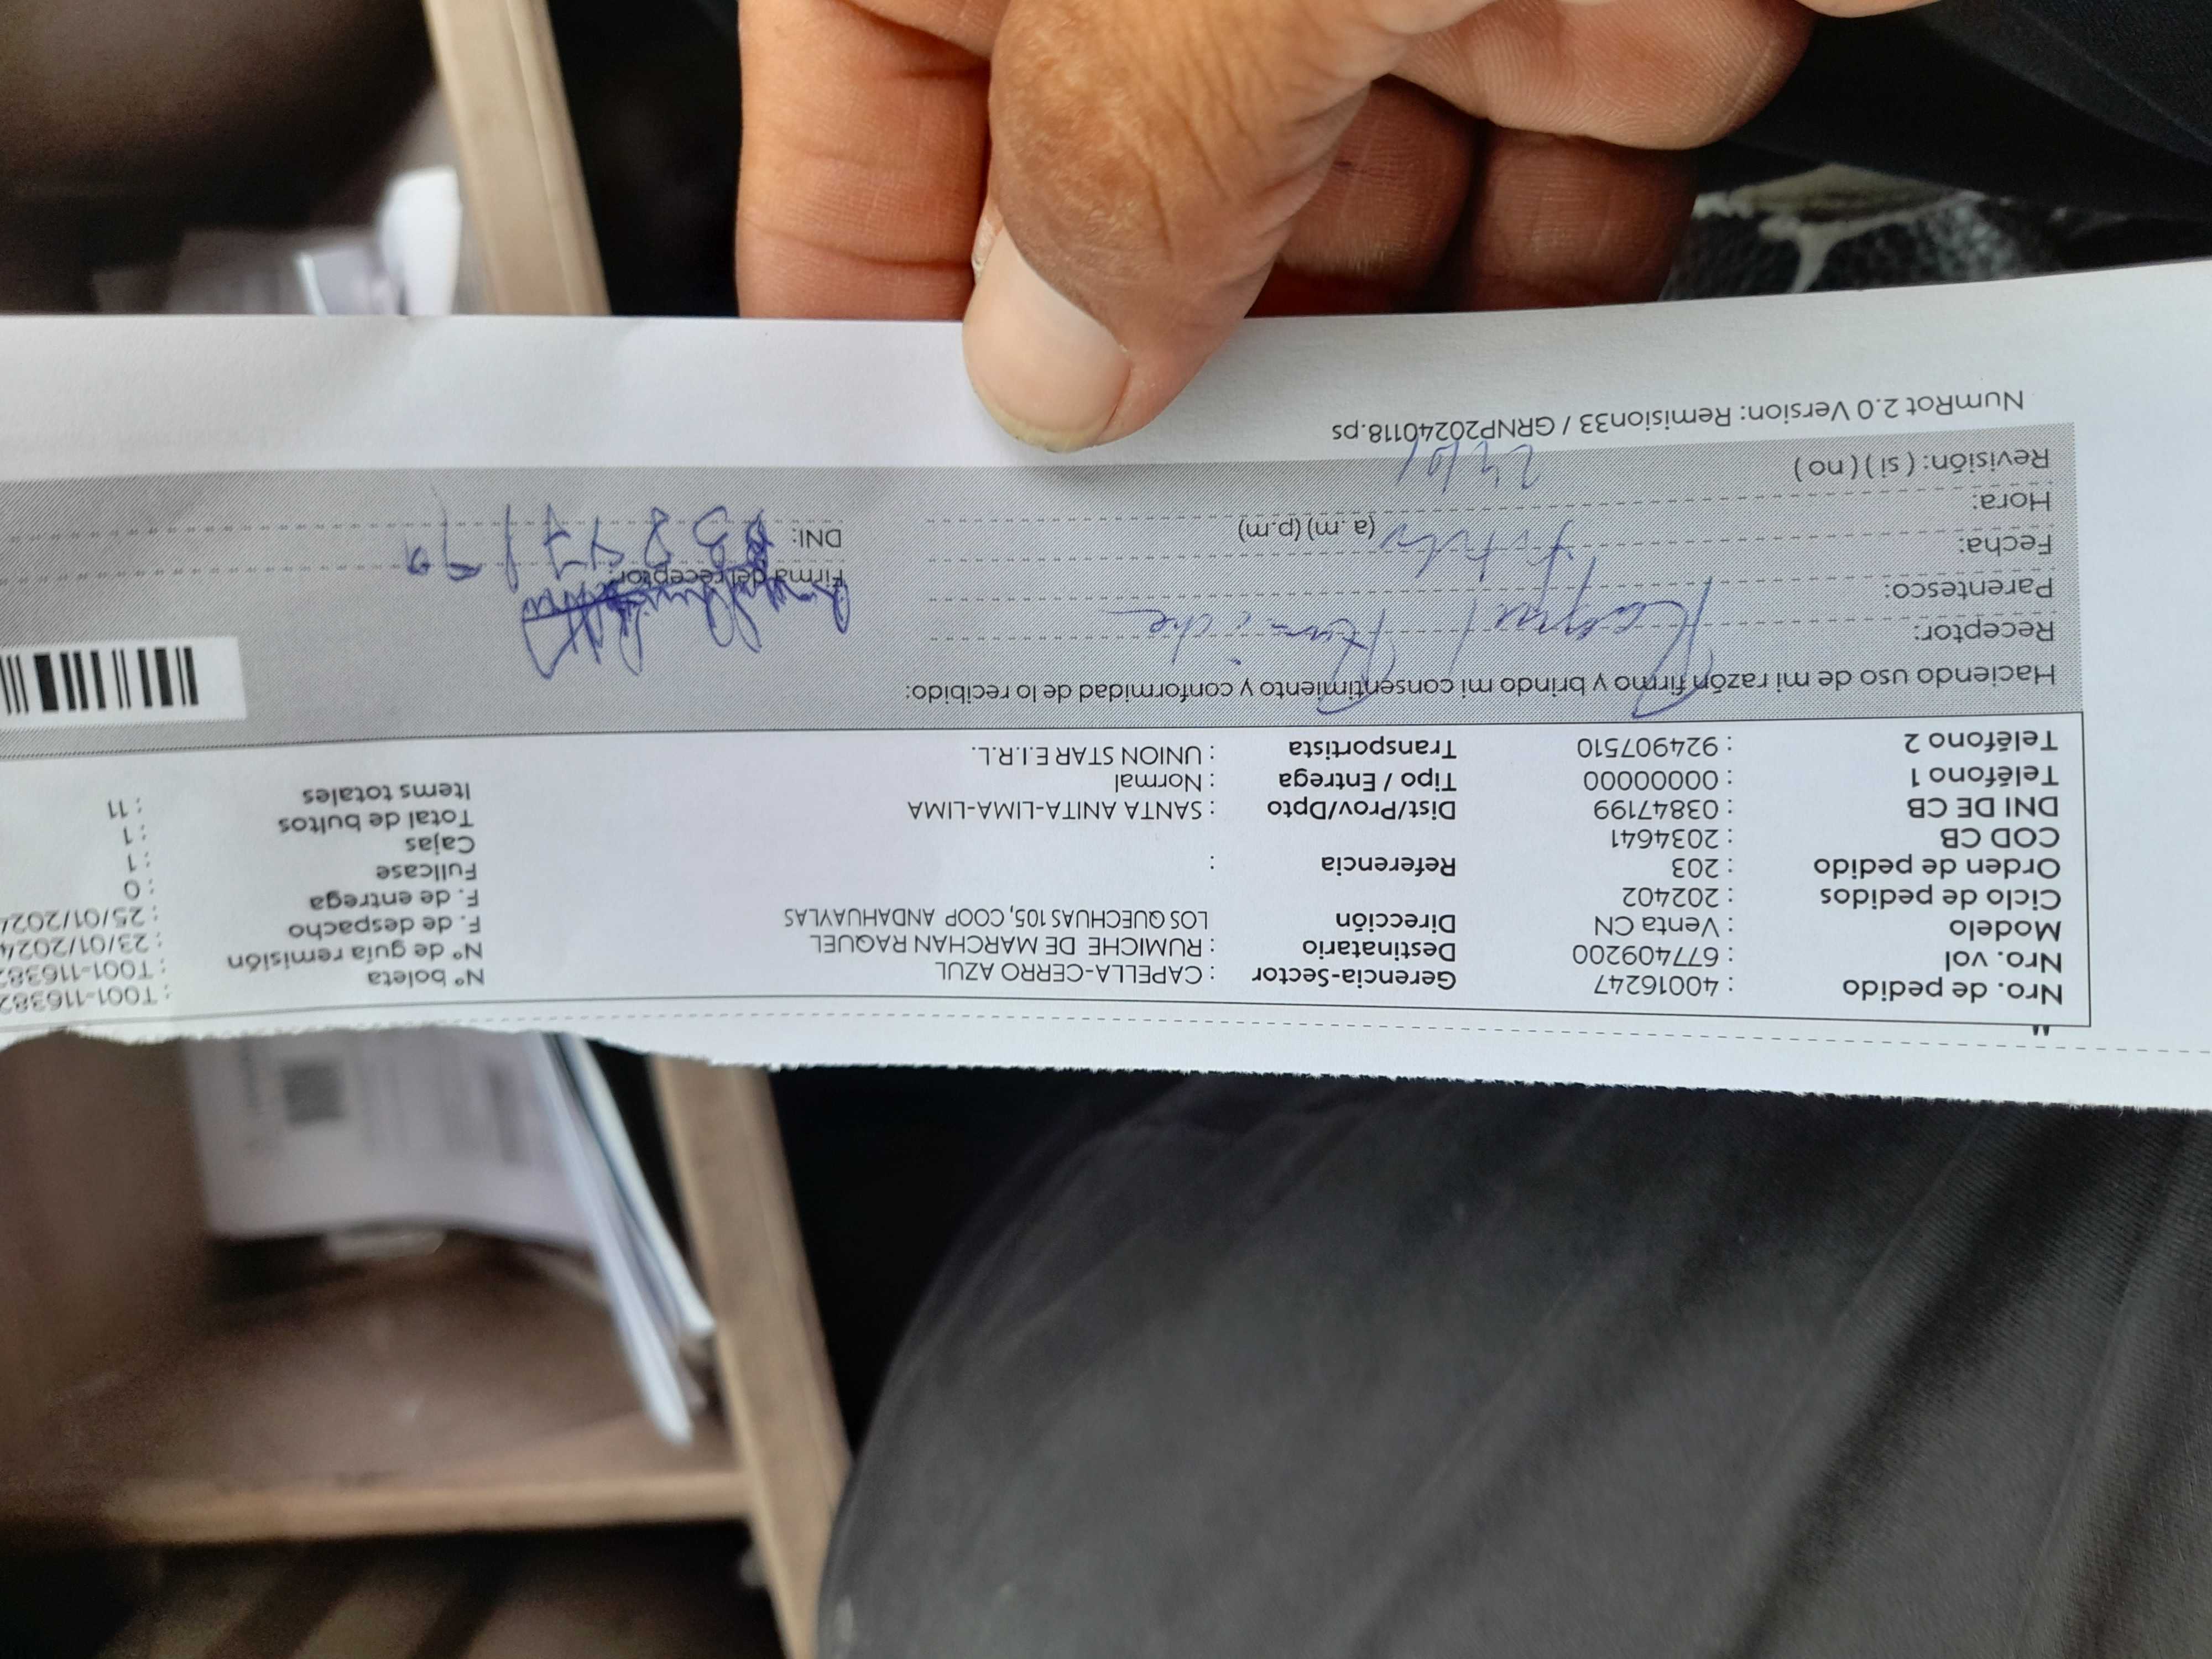 Nro. de pedido : 40016247 Gerencia-Sector : CAPELLA-CERRO AZUL Nº boleta : T001-116382
Nro. vol : 677409200 Destinatario : RUMICHE DE MARCHAN RAQUEL Nº de guía remisión : T001-116382
Modelo : Venta CN Dirección LOS QUECHUAS 105, COOP ANDAHUAYLAS F. de despacho : 23/01/2024
Ciclo de pedidos : 202402 F. de entrega : 25/01/2024
Orden de pedido : 203 Referencia : Fullcase : 0
COD CB : 2034641 Cajas : 1
DNI DE CB : 03847199 Dist/Prov/Dpto : SANTA ANITA-LIMA-LIMA Total de bultos : 1
Teléfono 1 : 00000000 Tipo / Entrega : Normal Items totales : 11
Teléfono 2 : 924907510 Transportista : UNION STAR E.I.R.L.
Haciendo uso de mi razón firmo y brindo mi consentimiento y conformidad de lo recibido:
Receptor: Raquel Rumiche
Parentesco: Firma del receptor:
Fecha: Titular
Hora: (a.m) (p.m) DNI: 03847199
Revisión: ( si ) ( no ) 24/01
NumRot 2.0 Version: Remision33 / GRNP20240118.ps